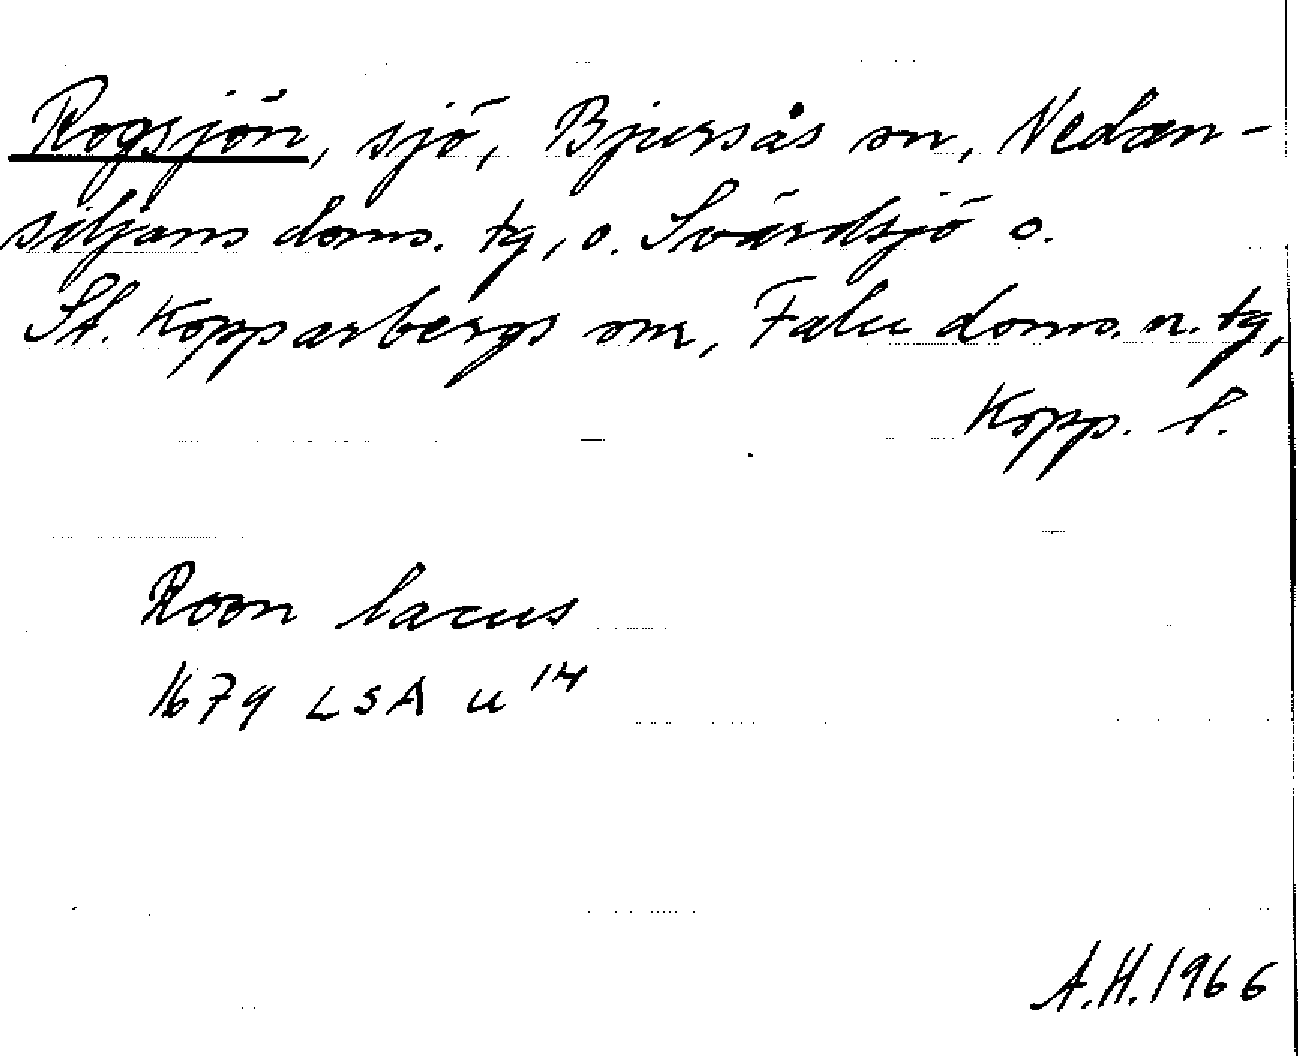 Rogsjön, sjö, Bjursås sn, Nedan-
siljans doms. tg, o. Svärdsjö o.
St. Kopparbergs snr, Falu doms. n. tg,
Kopp. l.
Roon lacus
1679 LSA u 14
A.H. 1966